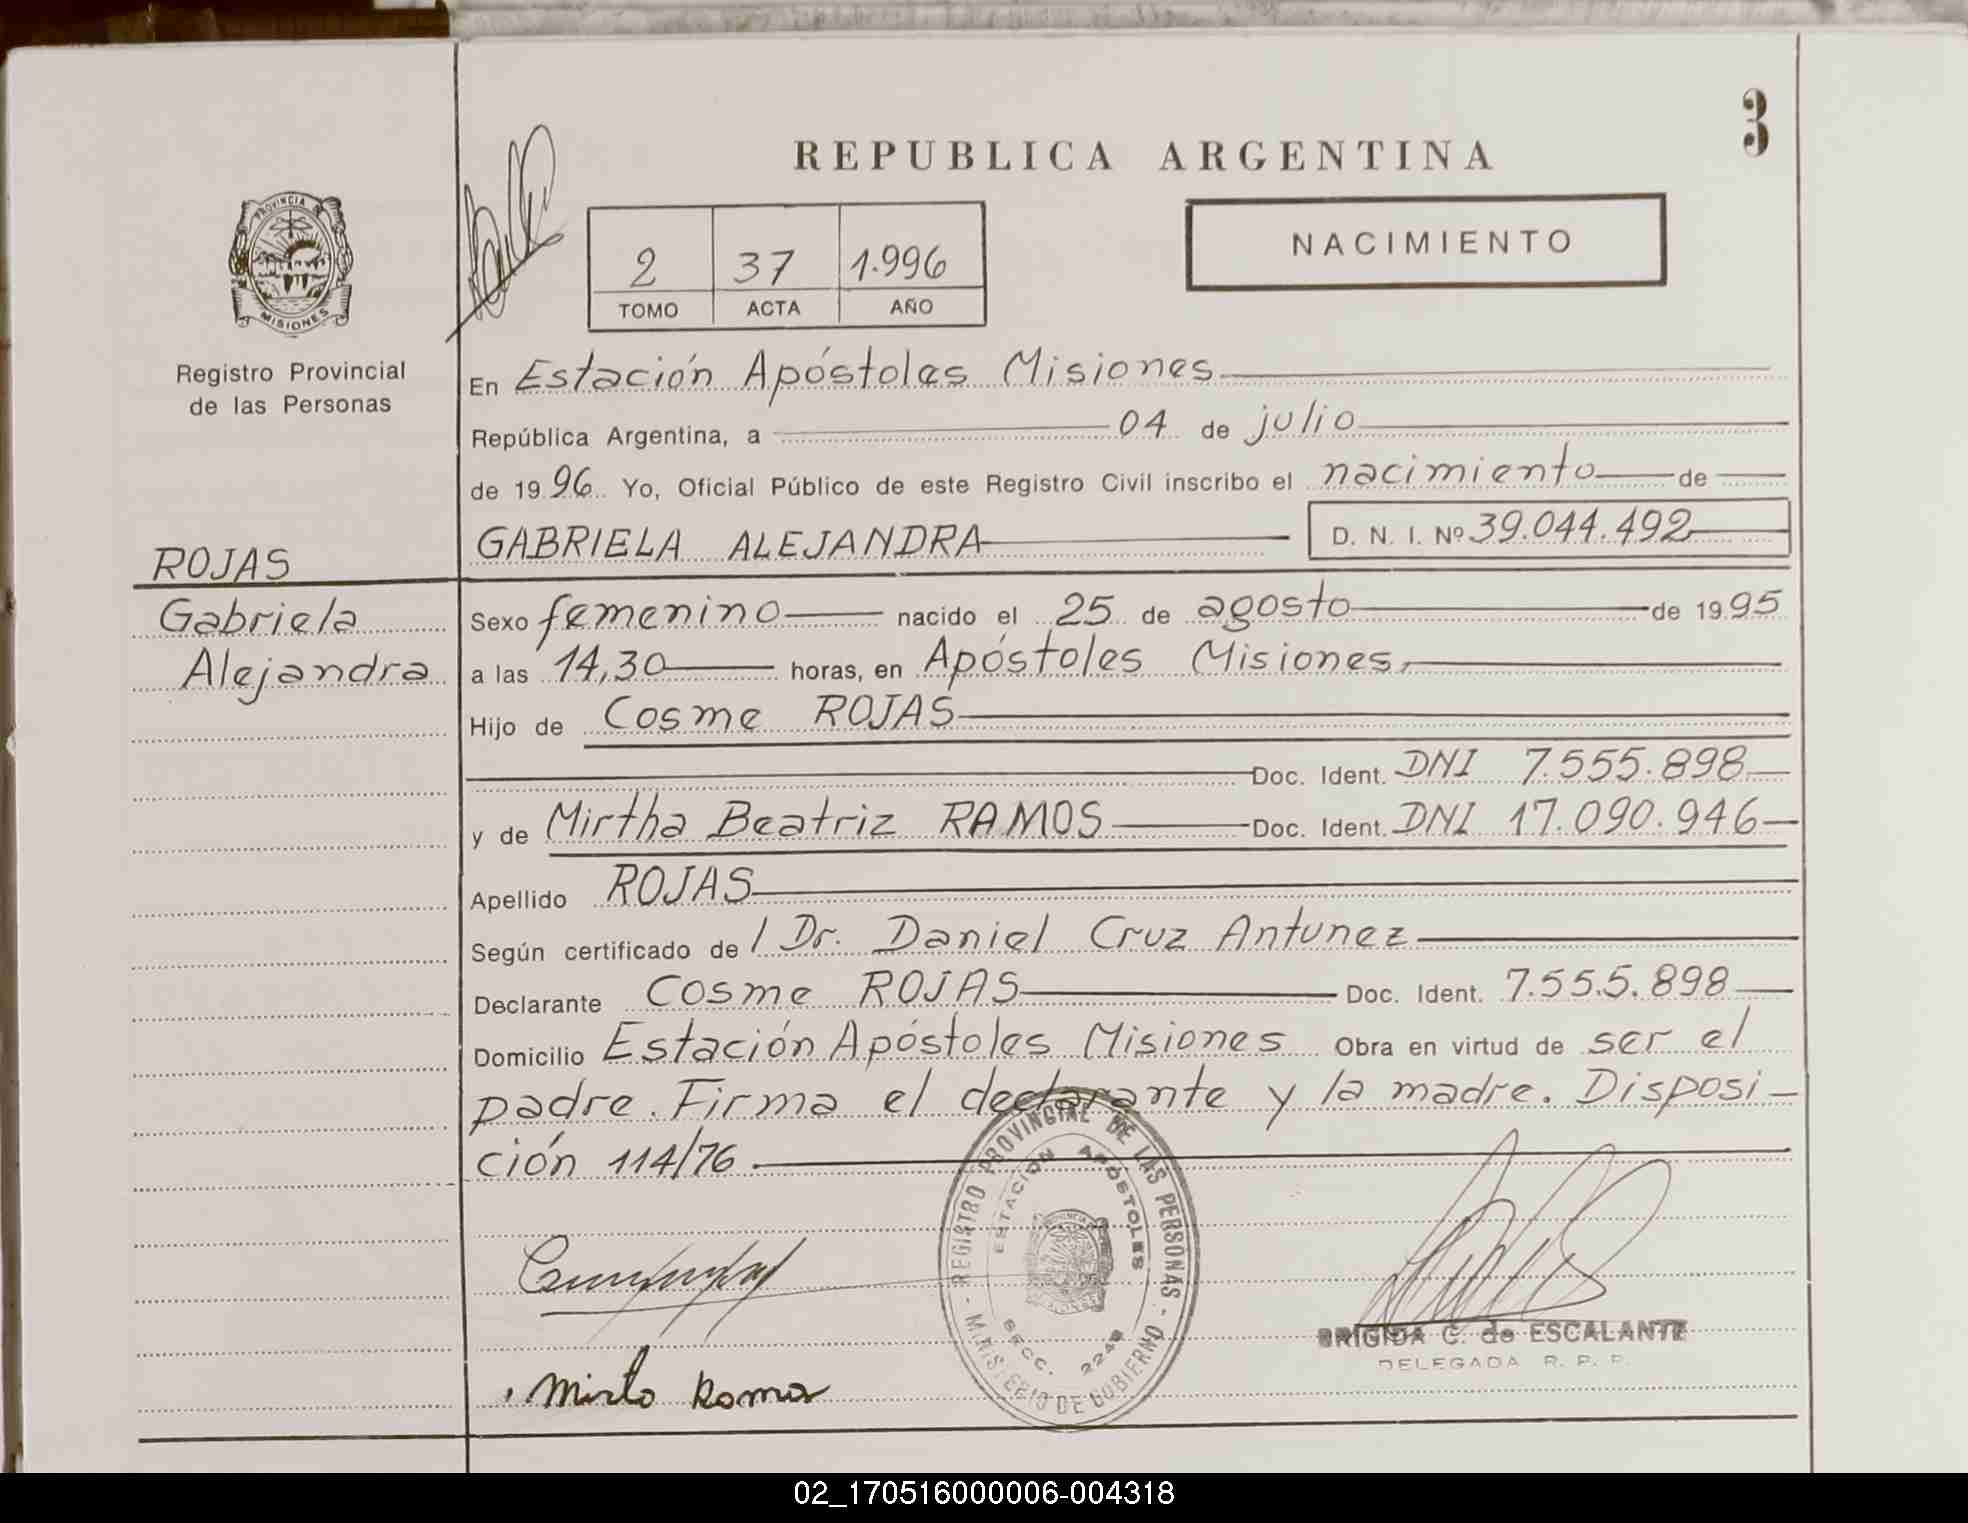 3
REPUBLICA ARGENTINA
PROVINCIA DE
MISIONES
Registro Provincial
de las Personas
2 37 1.996
TOMO ACTA AÑO
NACIMIENTO
En Estación Apóstoles Misiones
República Argentina, a 04 de julio
de 1996 Yo, Oficial Público de este Registro Civil inscribo el nacimiento de
GABRIELA ALEJANDRA D. N. I. Nº 39.044.492
ROJAS
Gabriela
Alejandra
Sexo femenino nacido el 25 de agosto de 1995
a las 14,30 horas, en Apóstoles Misiones,
Hijo de Cosme ROJAS
Doc. Ident. DNI 7.555.898
y de Mirtha Beatriz RAMOS Doc. Ident. DNI 17.090.946
Apellido ROJAS
Según certificado de / Dr. Daniel Cruz Antunez
Declarante Cosme ROJAS Doc. Ident. 7.555.898
Domicilio Estación Apóstoles Misiones Obra en virtud de ser el
padre. Firma el declarante y la madre. Disposi-
ción 114/76
REGISTRO PROVINCIAL DE LAS PERSONAS - MINISTERIO DE GOBIERNO -
ESTACION APOSTOLES
SECC. 2248
BRIGIDA C. de ESCALANTE
DELEGADA R. P. P.
02_170516000006-004318